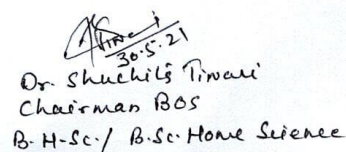 Tiwari
30.5.21
Dr. Shuchita Tiwari
Chairman BOS
B.H-Sc./ B.Sc. Home Science